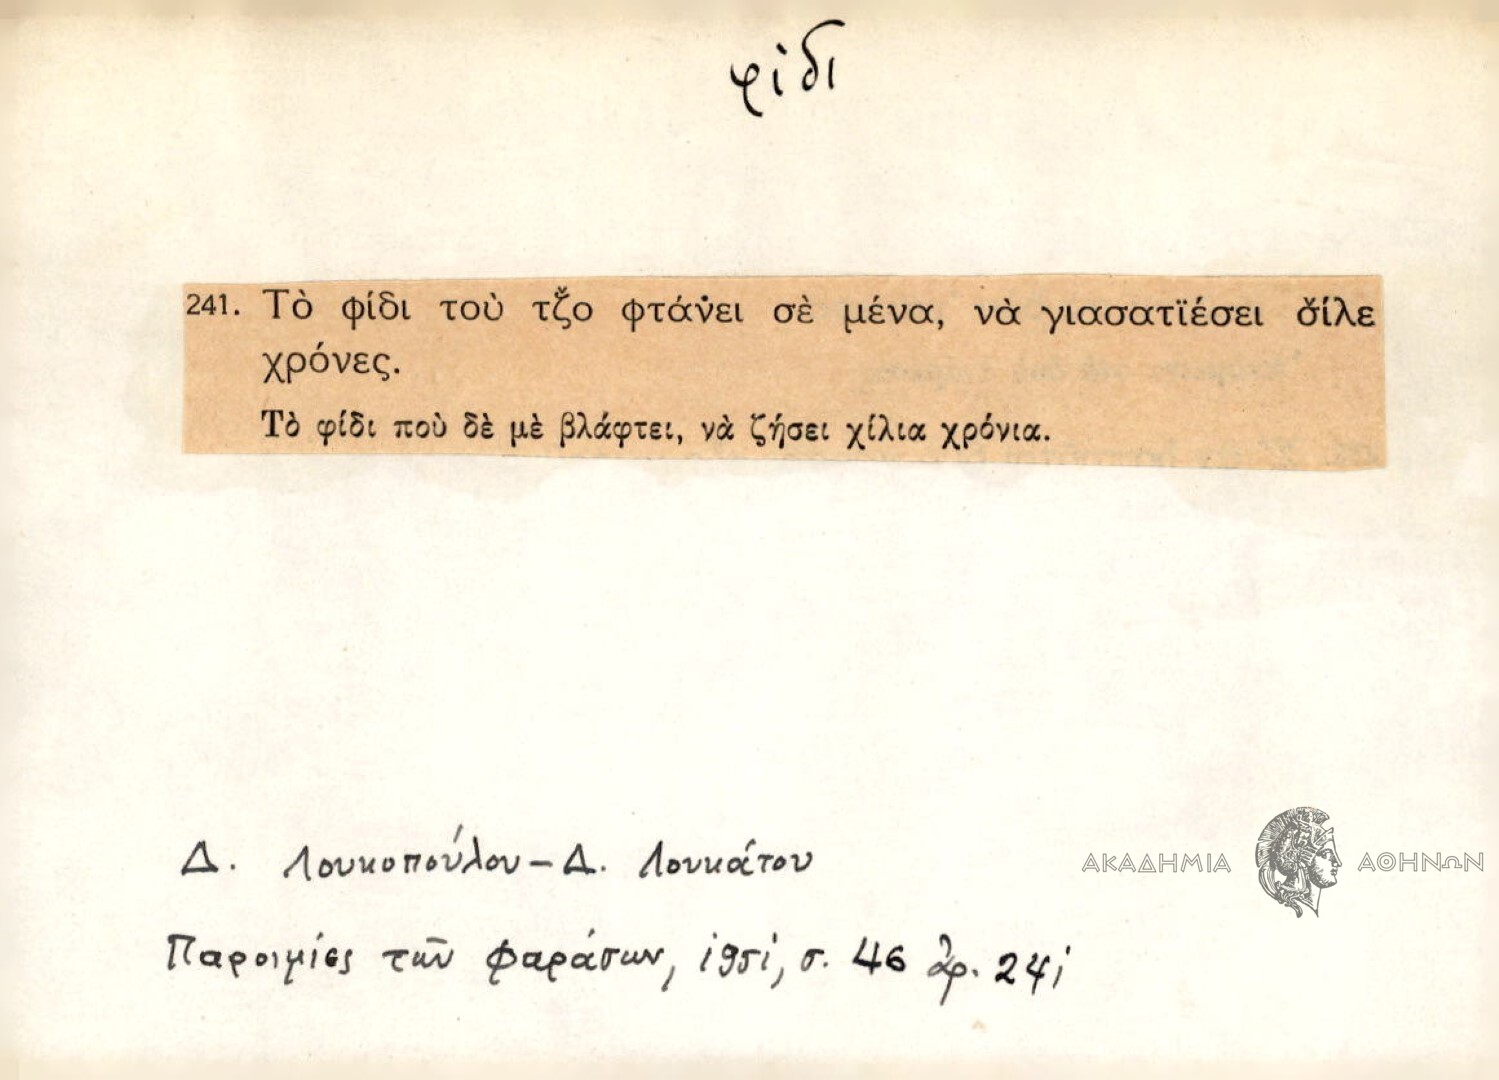 φίδι
241. Τὸ φίδι τοὺ τζ̌ο φτάνει σὲ μένα, νὰ γιασατϊέσει σ̌ίλε
χρόνες.
Τὸ φίδι ποὺ δὲ μὲ βλάφτει, νὰ ζήσει χίλια χρόνια.
Δ. Λουκοπούλου – Δ. Λουκάτου
ΑΚΑΔΗΜΙΑ ΑΘΗΝΩΝ
Παροιμίες τῶν Φαράσων, 1951, σ. 46 ἀρ. 241